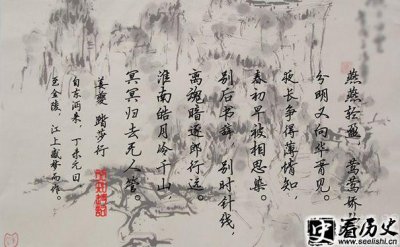 燕燕轻盈,莺莺娇
分明又向华胥见。
夜长争得薄情知,
春初早被相思染。
别后书辞,别时针线,
离魂暗逐郎行远。
淮南皓月冷千山
冥冥归去无人管。
姜夔 踏莎行
自东沔来,丁未元日,
至金陵,江上感梦而作。
看历史
www.seelishi.cn